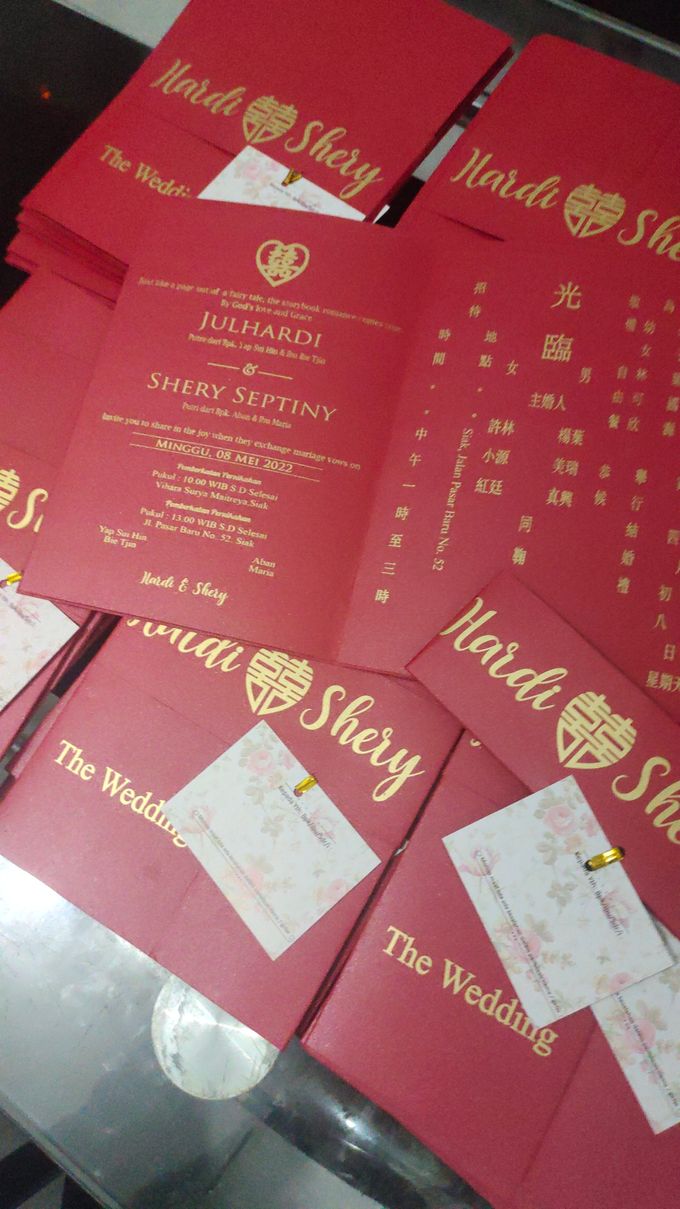 Hardi 囍 Shery
The Wedding
Hardi 囍 She
囍
Just like a page out of a fairy tale, the storybook romance comes true
By God's love and Grace
JULHARDI
Putra dari Bpk. Yap Sui Hin & Ibu Bie Tjin
&
SHERY SEPTINY
Putri dari Bpk. Aban & Ibu Maria
Invite you to share in the joy when they exchange mariage vows on
MINGGU, 08 MEI 2022
Pemberkatan Pernikahan
Pukul : 10.00 WIB S.D Selesai
Vihara Surya Maitreya,Siak
Pemberkatan Pernikahan
Pukul : 13.00 WIB S.D Selesai
Jl. Pasar Baru No. 52. Siak
Yap Sui Hin
Bie Tjin
Aban
Maria
Hardi & Shery
四月初八日
星期天
舉行結婚禮
幼女林可欣
敬備自由餐
恭候
光臨
男
女
主婚人
葉瑞興
楊美真
林源廷
許小紅
同鞠
招待地點。Siak, Jalan Pasar Baru No. 52
時間。中午一時至三時
Hardi 囍 Shery
The Wedding
Kepada Yth: Bpk/Ibu/Sdr/i
Hardi 囍 She
The Wedding
Kepada Yth: Bpk/Ibu/Sdr/i